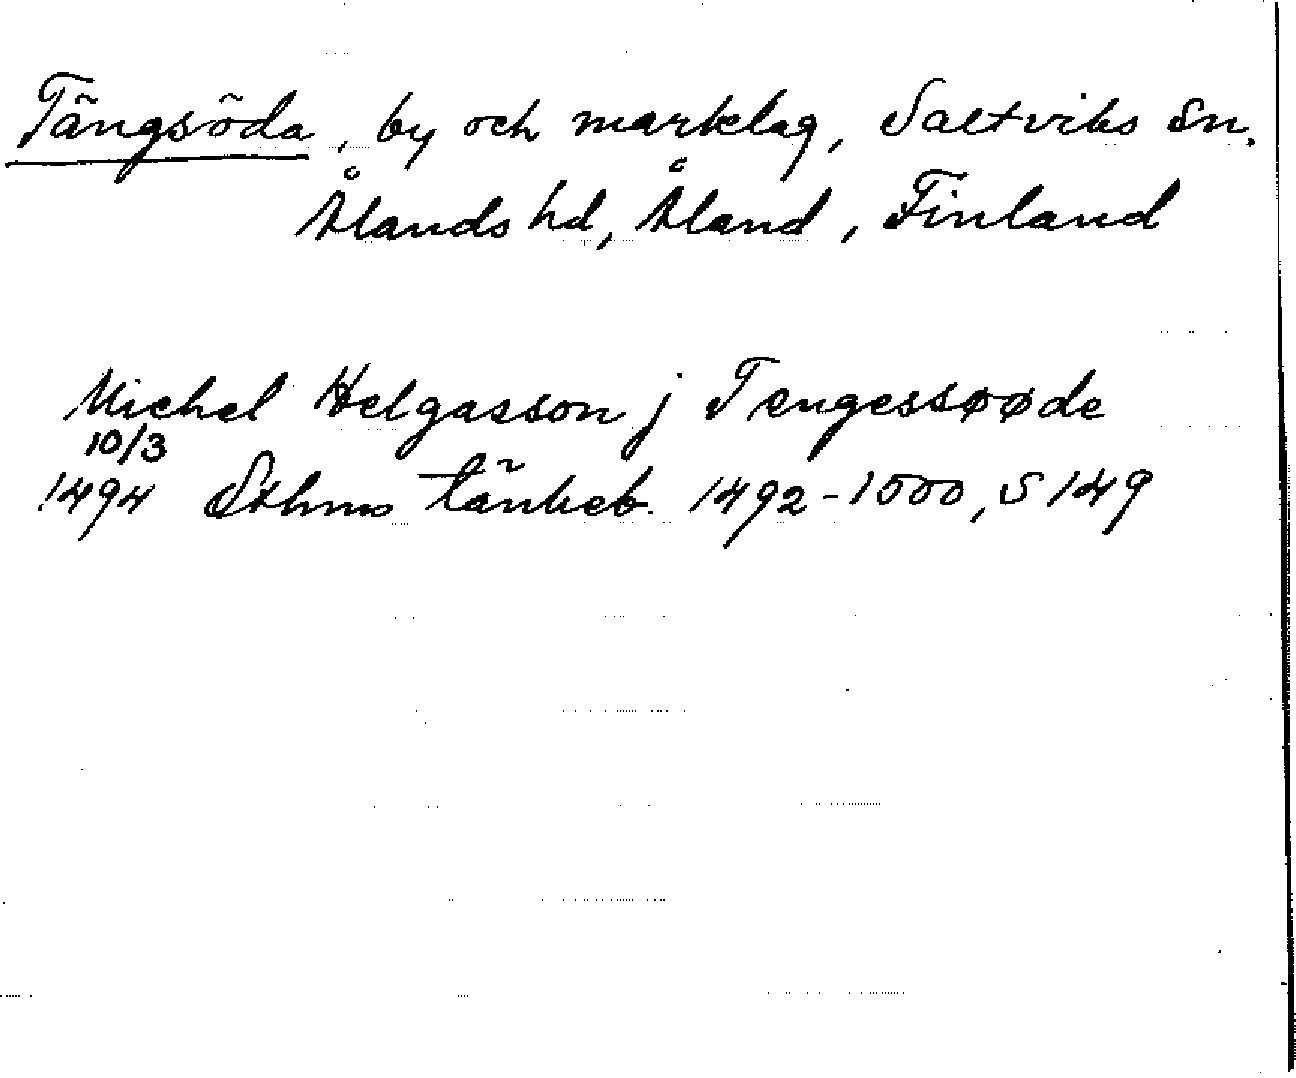 Tängsöda, by och marklag, Saltviks sn.
Ålands hd, Åland, Finland
Michel Helgasson j Tengessøøde
10/3
1494 Sthms tänkeb. 1492-1500, S 149